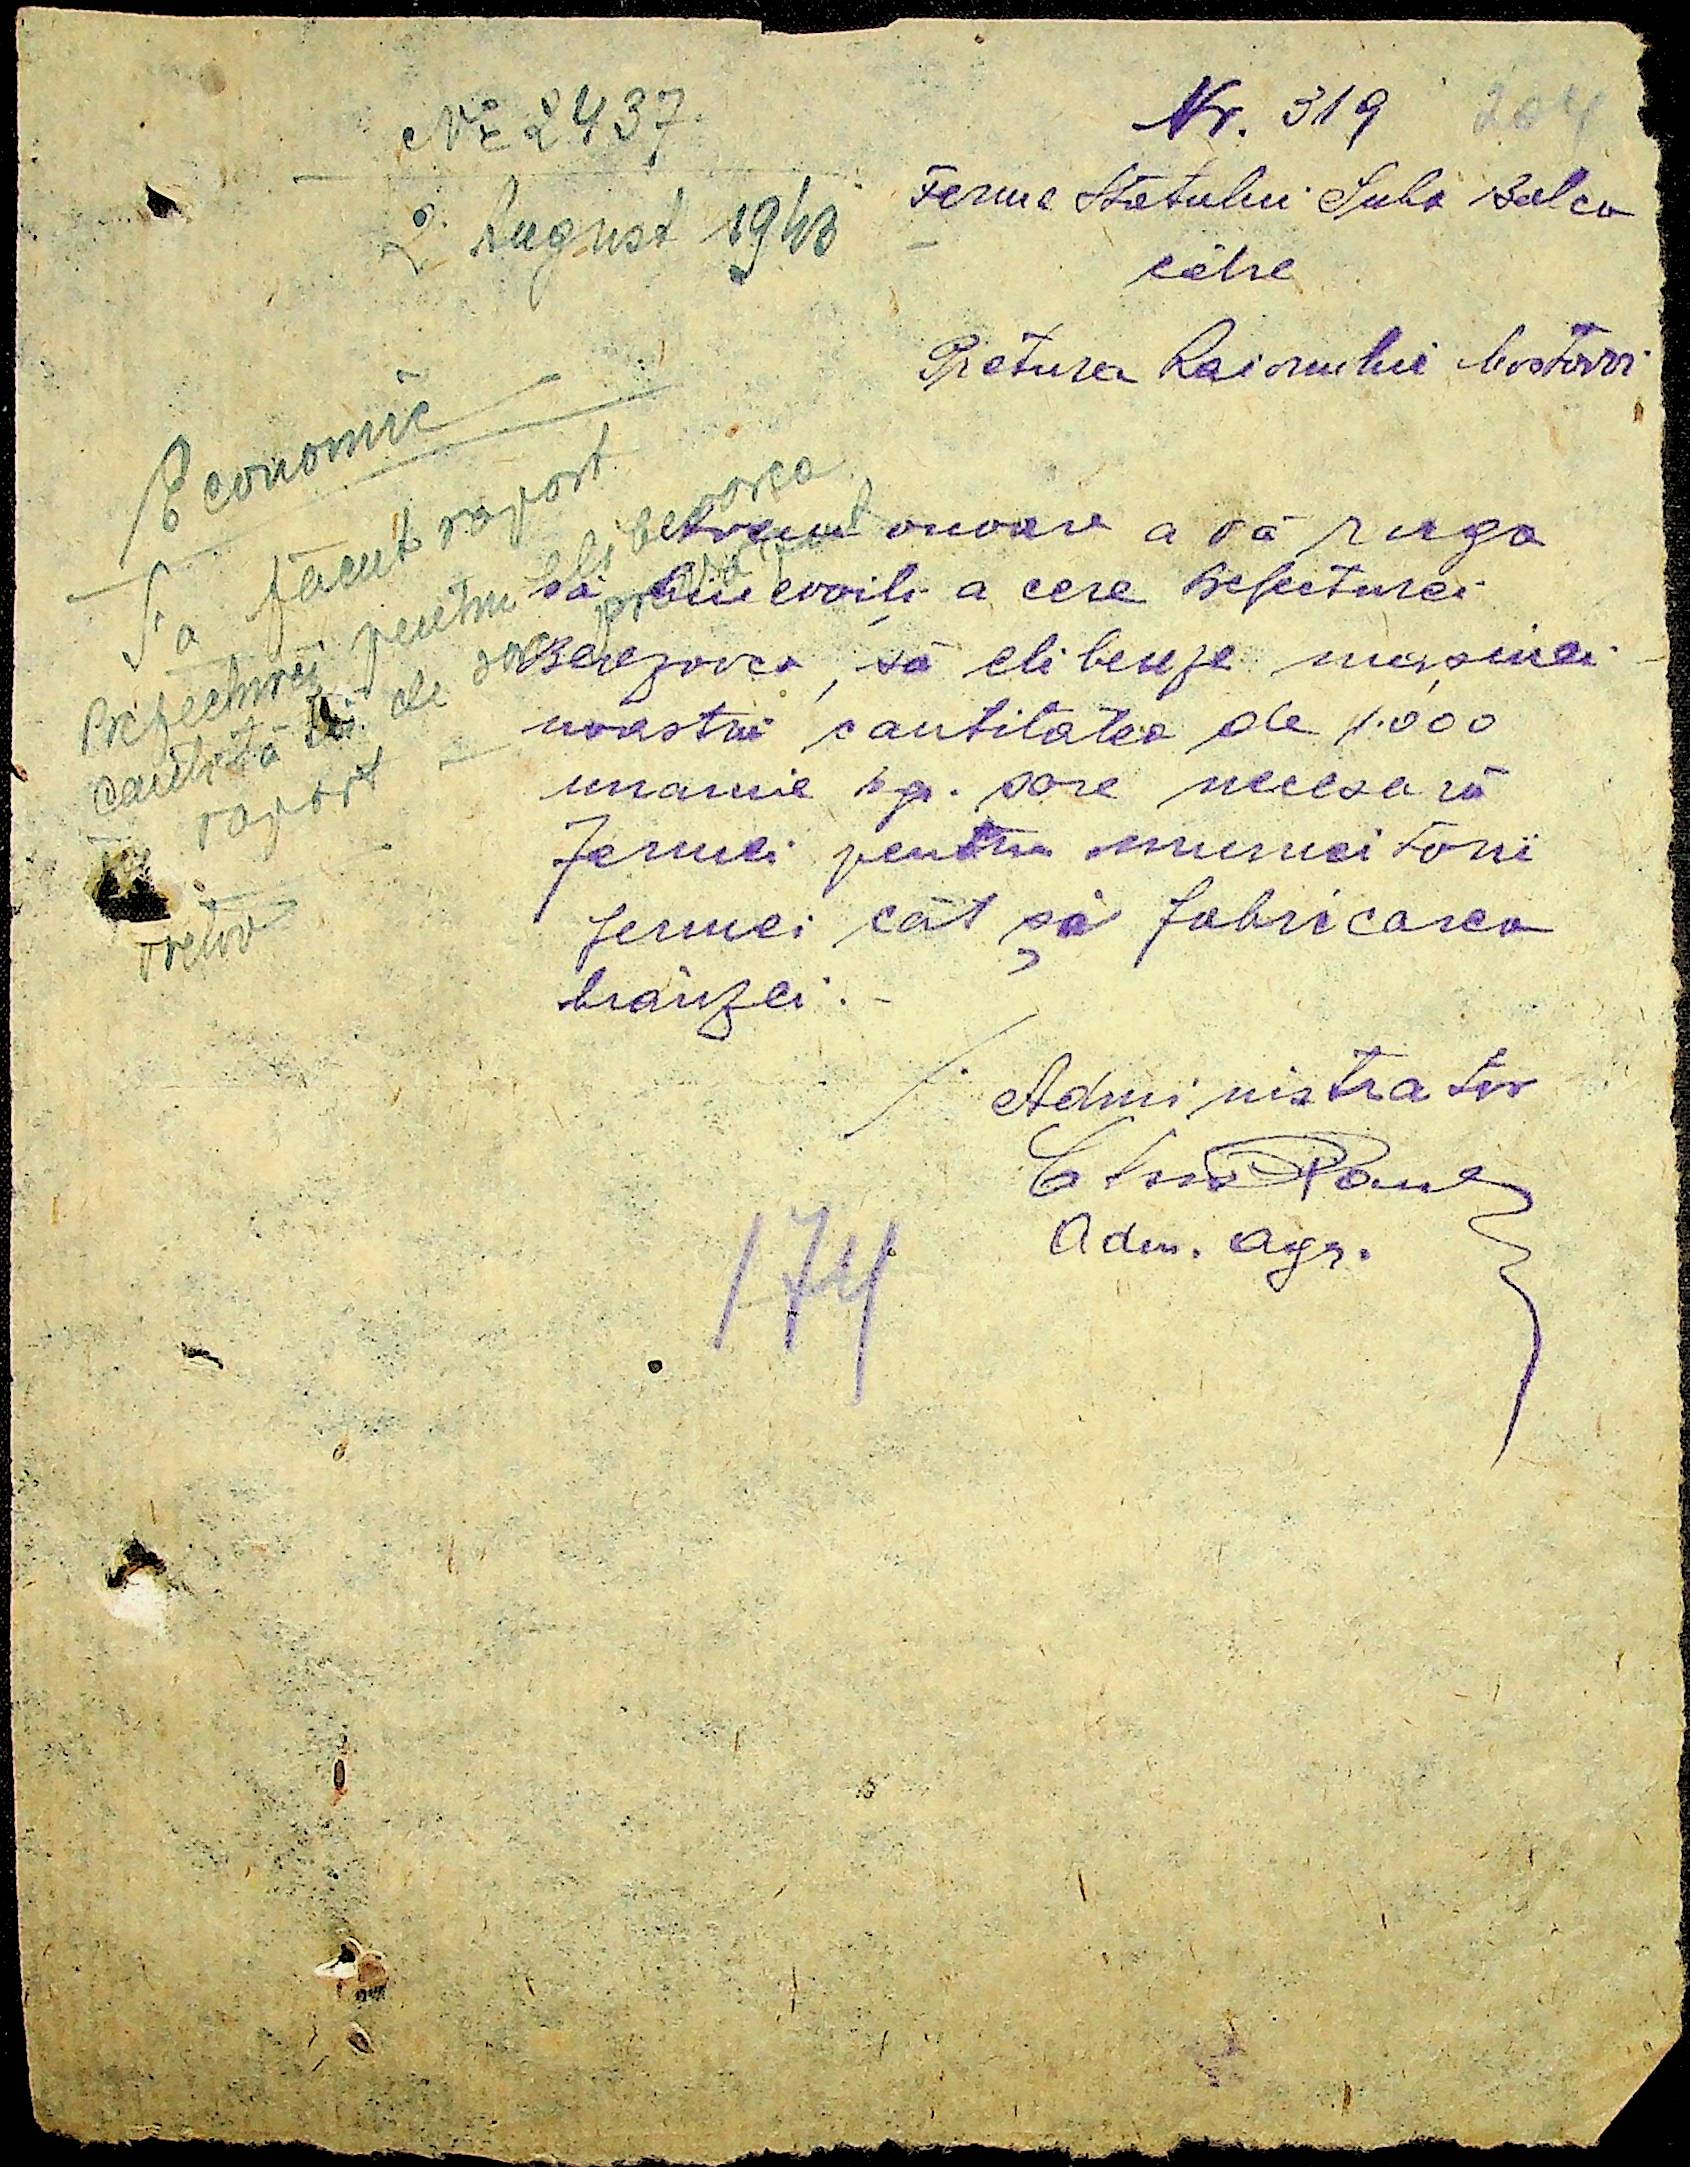 Nr. 319
204
№ 2437
2 August 1943
Ferma Statului Suha Balca
către
Pretura Raionului Mostovoi
Economic
S'a făcut raport
Prefecturei pentru eliberarea
cantităței de sare prevăzut
raport
Avem onoare a vă ruga
să binevoiți a cere Prefecturei
Berezovca, să elibereze mașinei
noastre cantitatea de 1.000
unamie kgr. sare necesară
Fermei pentru muncitorii
fermei cât și fabricarea
brânzei.-
Administrator
Adm. agr.
174